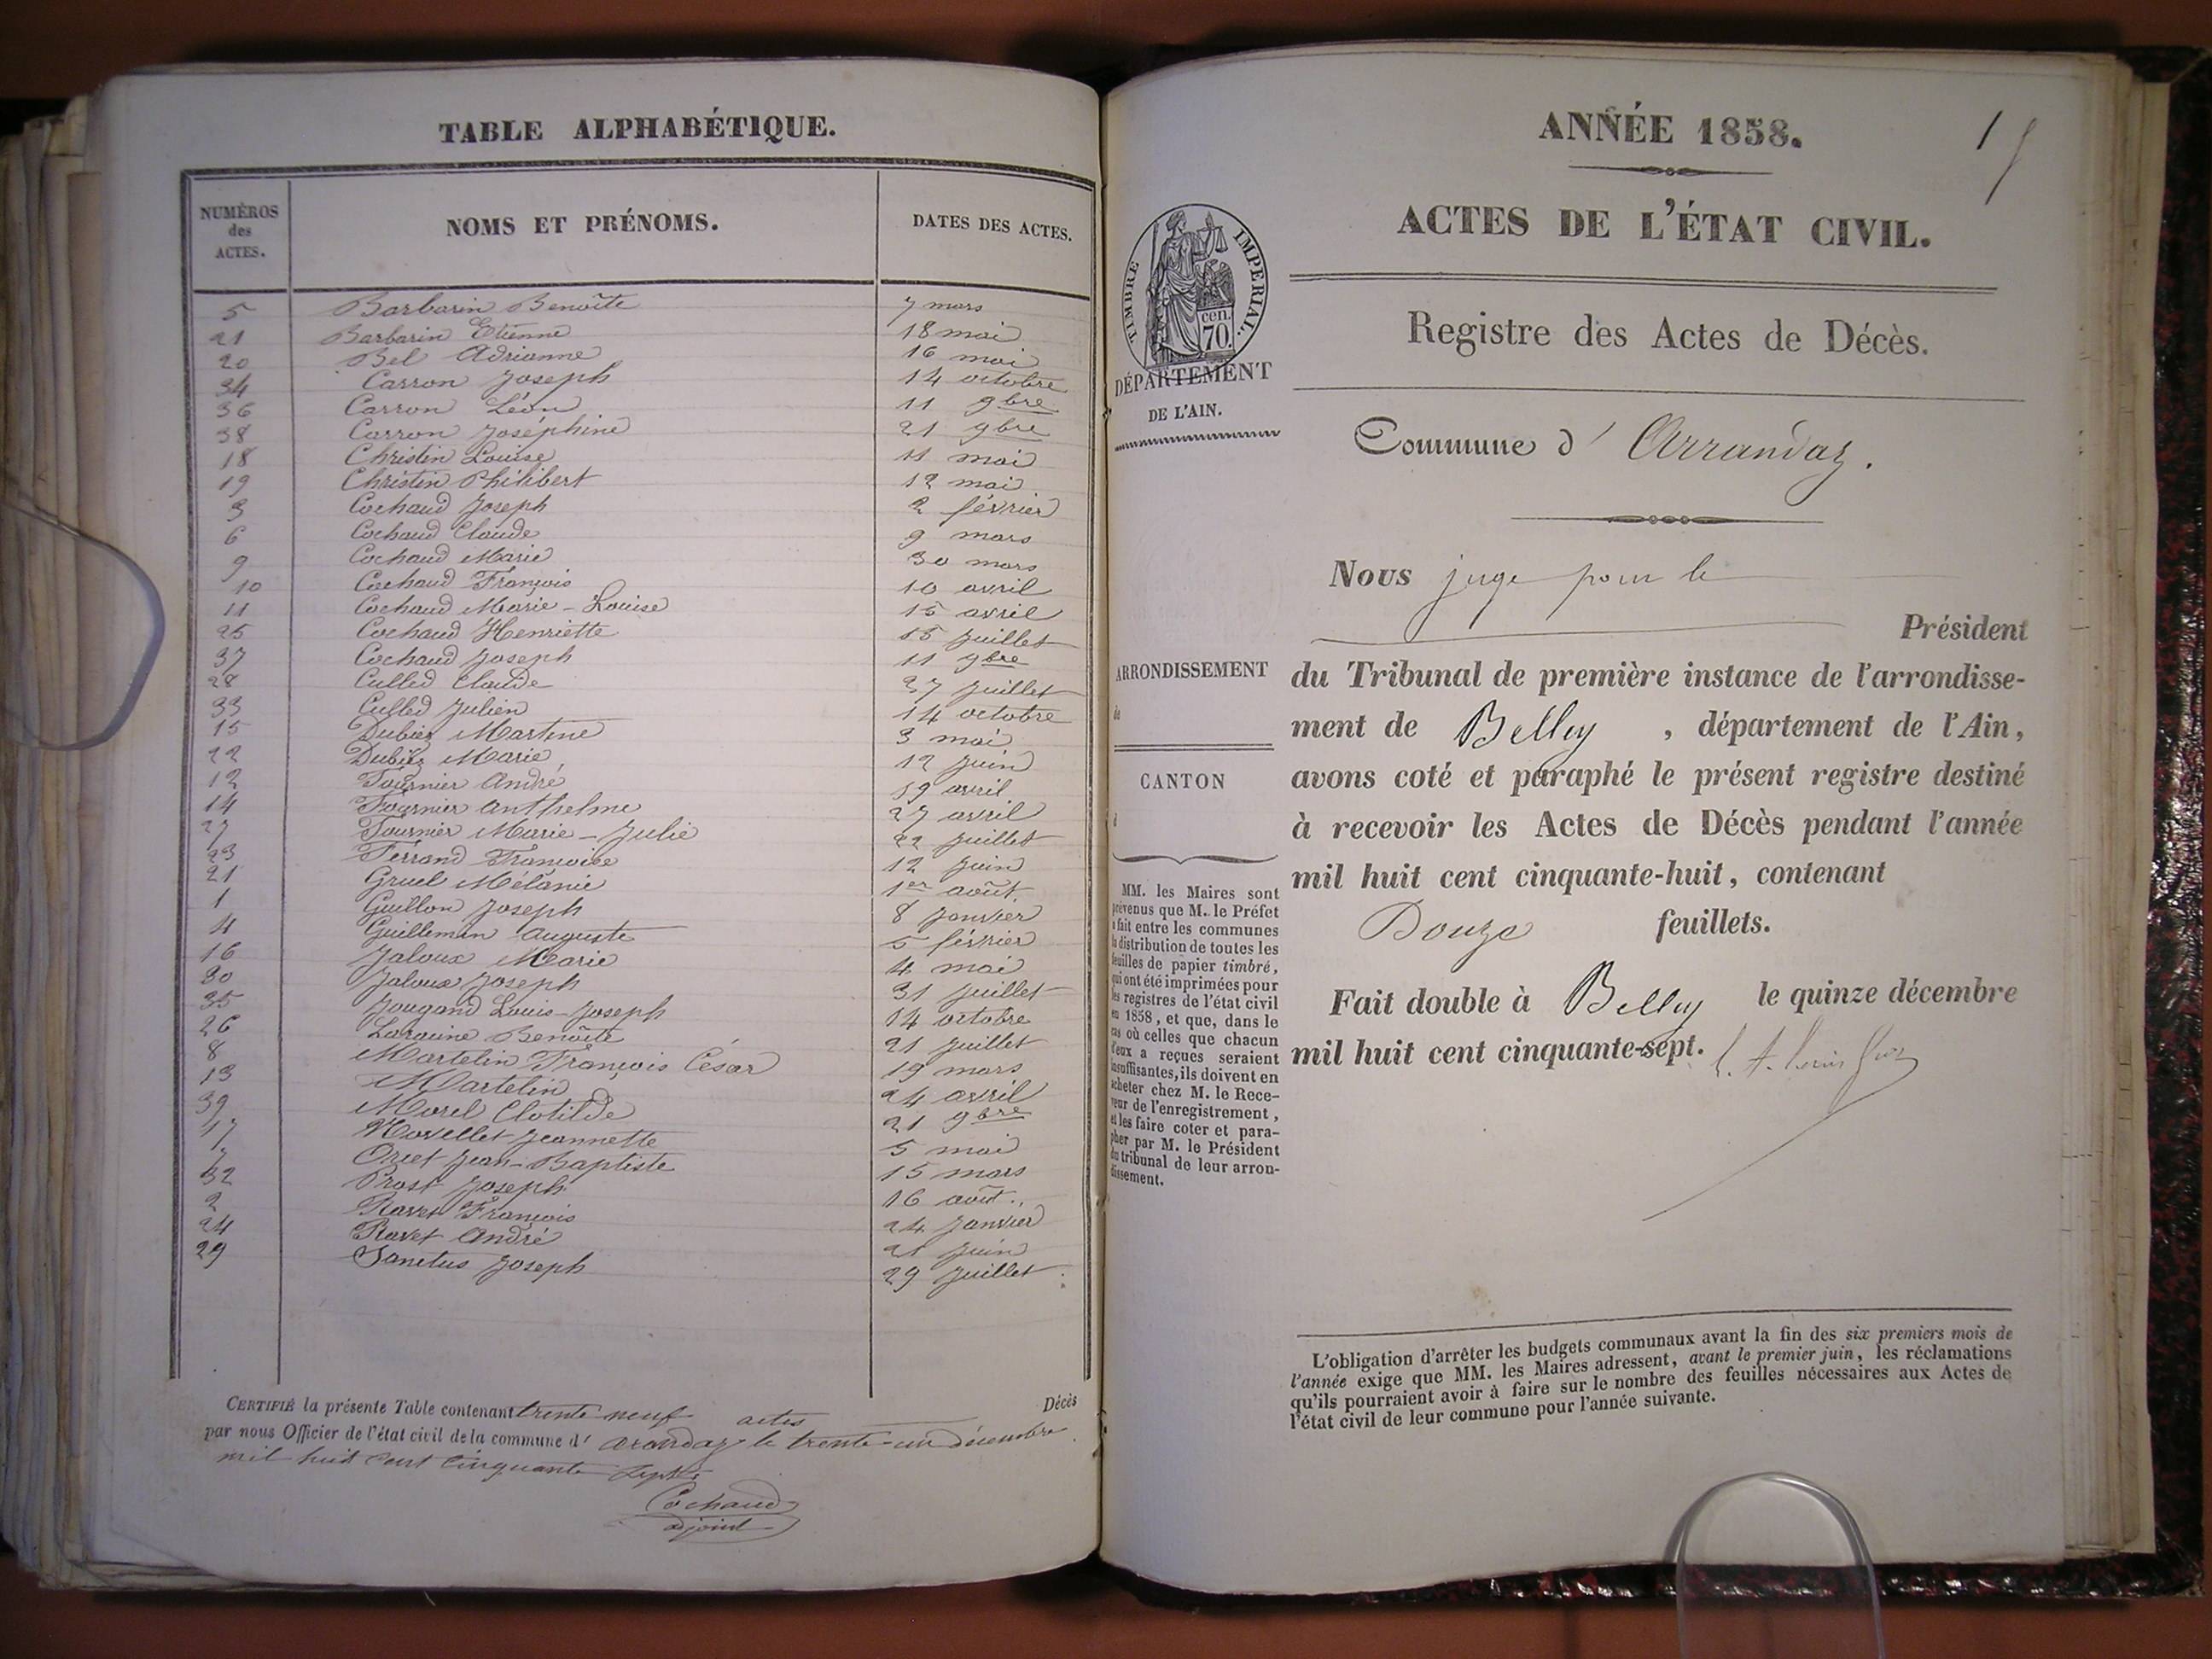 TABLE ALPHABÉTIQUE.
NUMÉROS des ACTES. NOMS ET PRÉNOMS. DATES DES ACTES.
5 Barbarin Benoîte 7 mars
21 Barbarin Etienne 18 mai
20 Bel Adrianne 16 mai
34 Carron Joseph 14 octobre
36 Carron Léon 11 9bre
38 Carron Joséphine 21 9bre
18 Christin Louise 11 mai
19 Christin Philibert 12 mai
3 Cochaud Joseph 2 février
6 Cochaud Claude 9 mars
9 Cochaud Marie 30 mars
10 Cochaud François 10 avril
11 Cochaud Marie-Louise 15 avril
25 Cochaud Henriette 15 juillet
37 Cochaud Joseph 11 9bre
28 Culled Claude 27 juillet
33 Culled Julien 14 octobre
15 Dubiez Martine 3 mai
22 Dubiez Marie 12 juin
12 Fournier André 19 avril
14 Fournier Anthelme 27 avril
27 Fournier Marie-Julie 22 juillet
23 Ferrand Françoise 12 juin
21 Gruel Mélanie 1er août.
1 Guillon Joseph 8 janvier
4 Guillemin Auguste 5 février
16 Jaloux Marie 4 mai
30 Jaloux Joseph 31 juillet
35 Jougand Louis-Joseph 14 octobre
26 Laraine Benoîte 21 juillet
8 Martelin François César 19 mars
13 Martelin 24 avril
39 Morel Clotilde 21 9bre
17 Novellet Jeannette 5 mai
7 Orcet Jean-Baptiste 15 mars
32 Prost Joseph 16 août.
2 Ravet François 24 janvier
24 Ravet André 21 juin
29 Sanctus Joseph 29 juillet
CERTIFIÉ la présente Table contenant trente neuf actes Décès
par nous Officier de l'état civil de la commune d' arandaz le trente-un décembre
mil huit cent cinquante sept.
Cochaud
adjoint
ANNÉE 1858.
1
ACTES DE L'ÉTAT CIVIL.
TIMBRE IMPÉRIAL.
70. cen.
DÉPARTEMENT
DE L'AIN.
Registre des Actes de Décès.
Commune d' Arrandaz.
Nous juge pour le
Président
ARRONDISSEMENT
de
CANTON
d
du Tribunal de première instance de l'arrondisse-
ment de Belley , département de l'Ain,
avons coté et paraphé le présent registre destiné
à recevoir les Actes de Décès pendant l'année
mil huit cent cinquante-huit, contenant
Douze feuillets.
Fait double à Belley le quinze décembre
mil huit cent cinquante-sept.
MM. les Maires sont
prévenus que M. le Préfet
a fait entre les communes
la distribution de toutes les
feuilles de papier timbré,
qui ont été imprimées pour
les registres de l'état civil
en 1858, et que, dans le
cas où celles que chacun
d'eux a reçues seraient
insuffisantes, ils doivent en
acheter chez M. le Rece-
veur de l'enregistrement,
et les faire coter et para-
pher par M. le Président
du tribunal de leur arron-
dissement.
L'obligation d'arrêter les budgets communaux avant la fin des six premiers mois de
l'année exige que MM. les Maires adressent, avant le premier juin, les réclamations
qu'ils pourraient avoir à faire sur le nombre des feuilles nécessaires aux Actes de
l'état civil de leur commune pour l'année suivante.